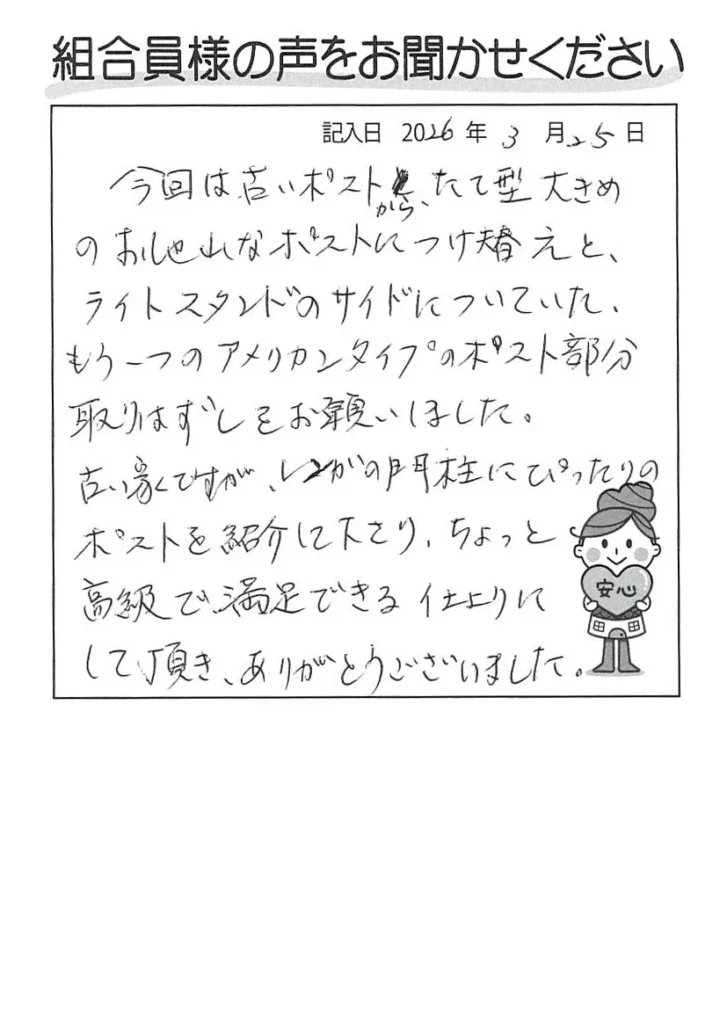 組合員様の声をお聞かせください
記入日 2026年3月25日
今回は古いポストから、たて型大きめ
のおしゃれなポストにつけ替えと、
ライトスタンドのサイドについていた、
もう一つのアメリカンタイプのポスト部分
取りはずしをお願いしました。
古い家ですが、レンガの門柱にぴったりの
ポストを紹介して下さり、ちょっと
高級で、満足できる仕上りに
して頂き、ありがとうございました。
安心